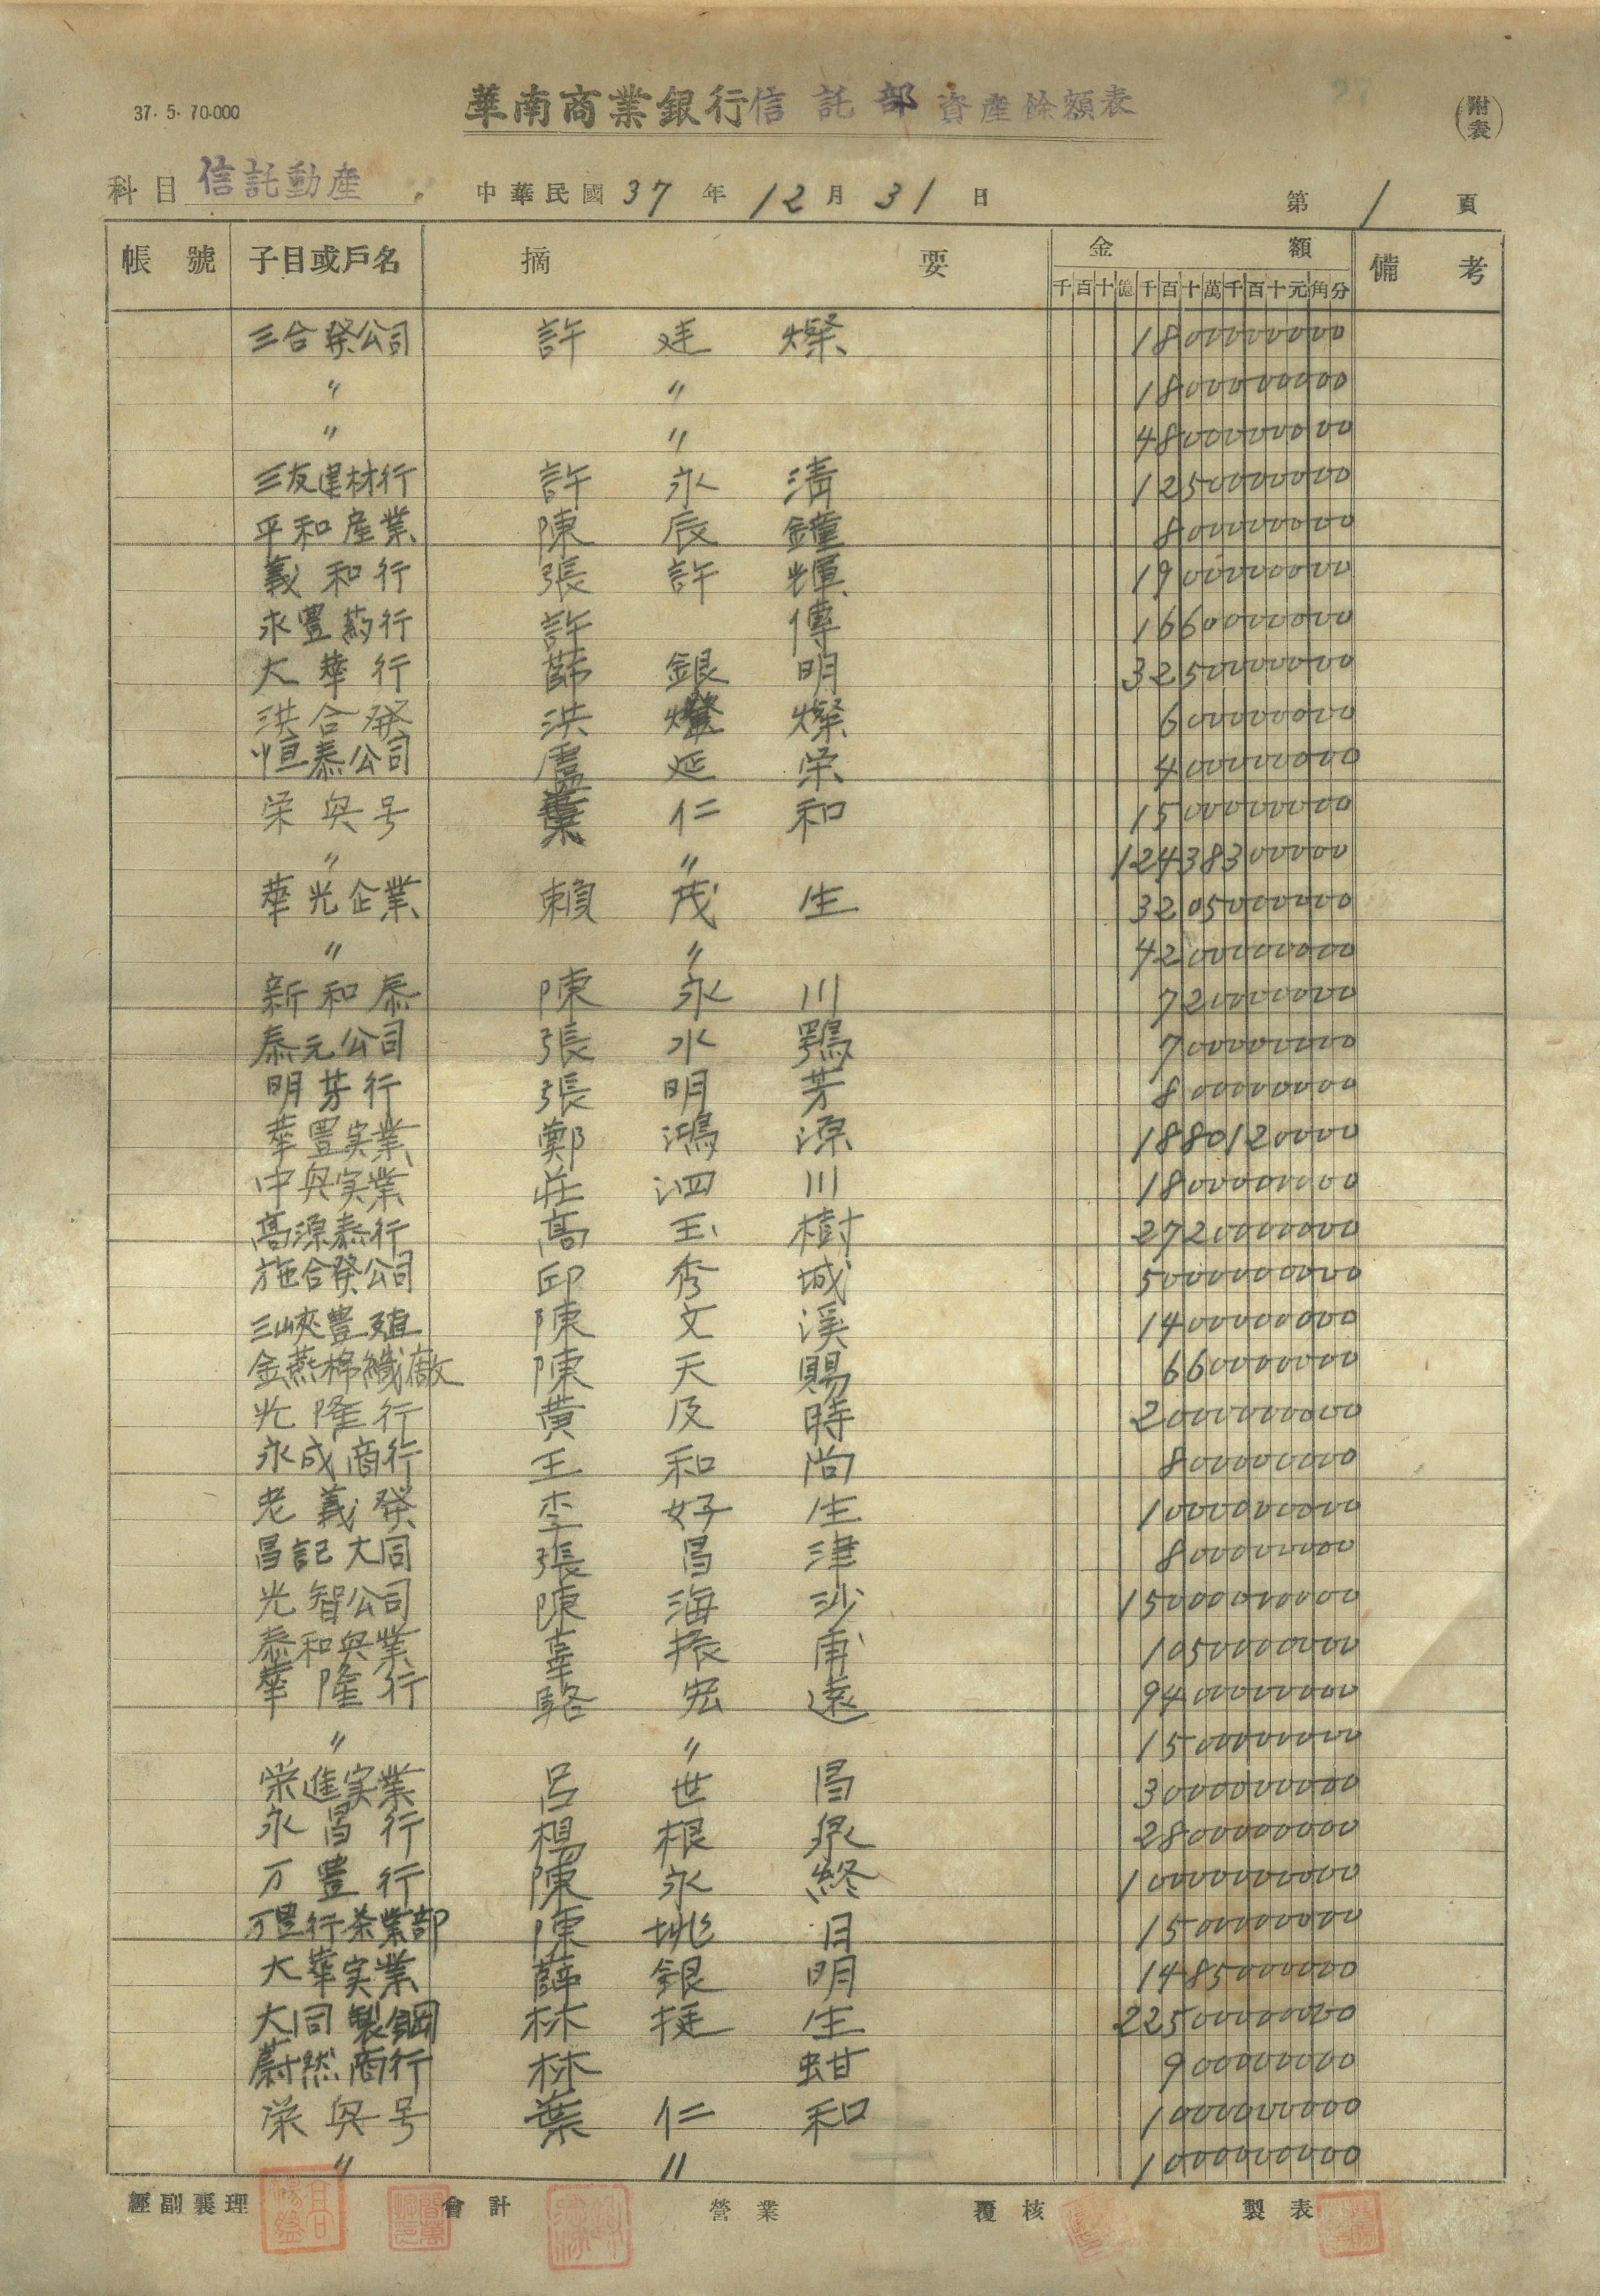 37. 5. 70.000
華南商業銀行信託部資產餘額表
(附表)
科目 信託動產 中華民國37年12月31日 第1頁
帳號 子目或戶名 摘要 金額 備考
千百十億千百十萬千百十元角分
三合発公司 許廷燦 1800000000
〃 〃 1800000000
〃 〃 4800000000
三友建材行 許永清 1250000000
平和産業 陳辰鐘 800000000
義和行 張許輝 1900000000
永豊药行 許傳 1660000000
大華行 薛銀明 32500000000
洪合発 洪燦 600000000
恒泰公司 盧延栄 400000000
栄興号 葉仁和 1500000000
〃 〃 12438300000
華光企業 賴茂生 32050000000
〃 〃 4200000000
新和泰 陳永川 720000000
泰元公司 張水鶚 700000000
明芳行 張明芳 800000000
華豊実業 鄭鴻源 1880120000
中興実業 莊泗川 1800000000
高源泰行 高玉樹 2720000000
施合発公司 邱秀城 5000000000
三峽豊殖 陳文溪 1400000000
金燕棉織廠 陳天賜 660000000
光隆行 黄及時 20000000000
永成商行 王和尚 800000000
老義発 李好生 1000000000
昌記大同 張昌津 800000000
光智公司 陳海沙 15000000000
泰和興業 辜振甫 1050000000
華隆行 駱宏遠 9400000000
〃 〃 1500000000
栄進実業 呂世昌 3000000000
永昌行 楊根泉 2800000000
万豊行 陳永終 10000000000
万豊行茶業部 陳桃日 1500000000
大華実業 薛銀明 1485000000
大同製鋼 林挺生 22500000000
蔚然商行 林蚶 900000000
栄興号 葉仁和 1000000000
〃 〃 1000000000
經副襄理 會計 營業 覆核 製表